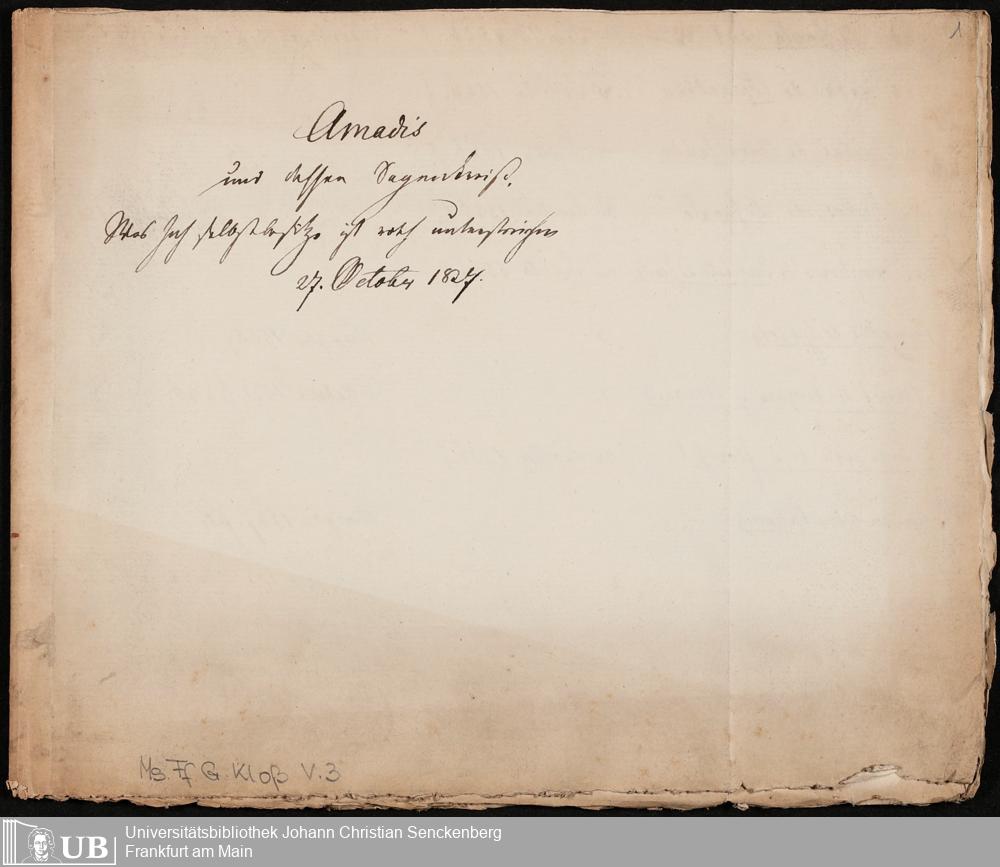 1
Amadis
und dessen Sagenkreiß.
Was ich selbst besitze ist roth unterstrichen
27. October 1827.
Ms. Ff. G. Kloß V. 3
UB
Universitätsbibliothek Johann Christian Senckenberg
Frankfurt am Main